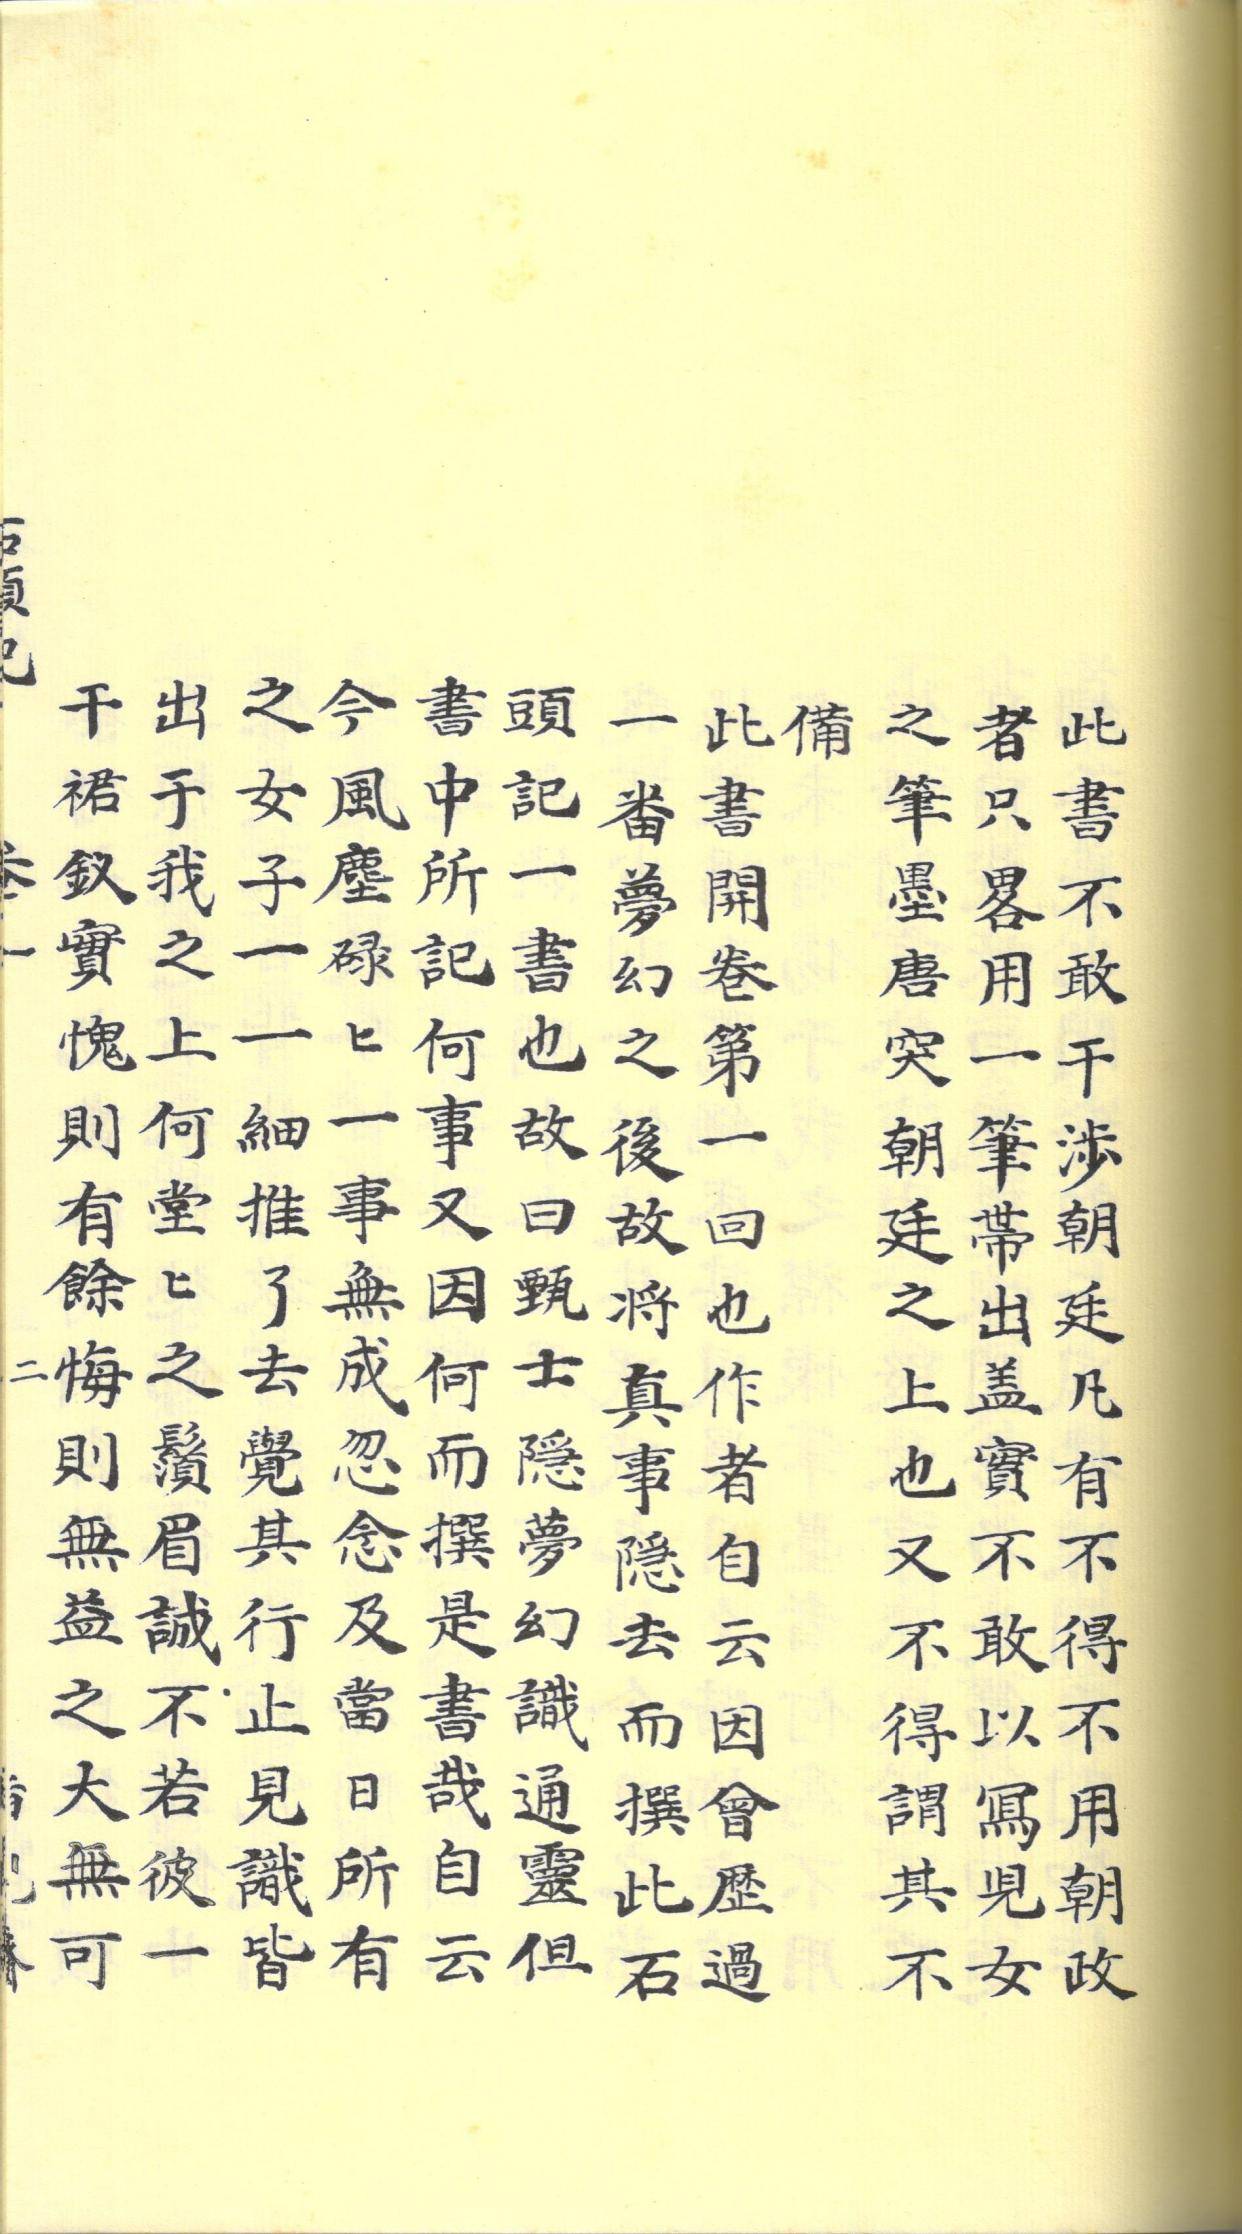 此書不敢干涉朝廷凡有不得不用朝政
者只畧用一筆帶出盖實不敢以寫児女
之筆墨唐突朝廷之上也又不得謂其不
備
此書開卷第一回也作者自云因曾歷過
一畨夢幻之後故将真事隐去而撰此石
頭記一書也故曰甄士隐夢幻識通靈但
書中所記何事又因何而撰是書哉自云
今風塵碌匕一事無成忽念及當日所有
之女子一一細推了去覺其行止見識皆
出于我之上何堂匕之鬚眉誠不若彼一
干裙釵實愧則有餘悔則無益之大無可
石頭記
卷一
二